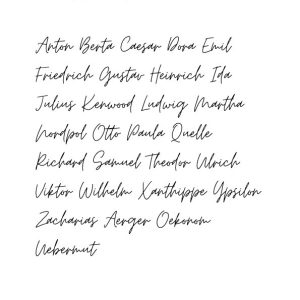 Anton Berta Caesar Dora Emil
Friedrich Gustav Heinrich Ida
Julius Kenwood Ludwig Martha
Nordpol Otto Paula Quelle
Richard Samuel Theodor Ulrich
Viktor Wilhelm Xanthippe Ypsilon
Zacharias Aerger Oekonom
Uebermut